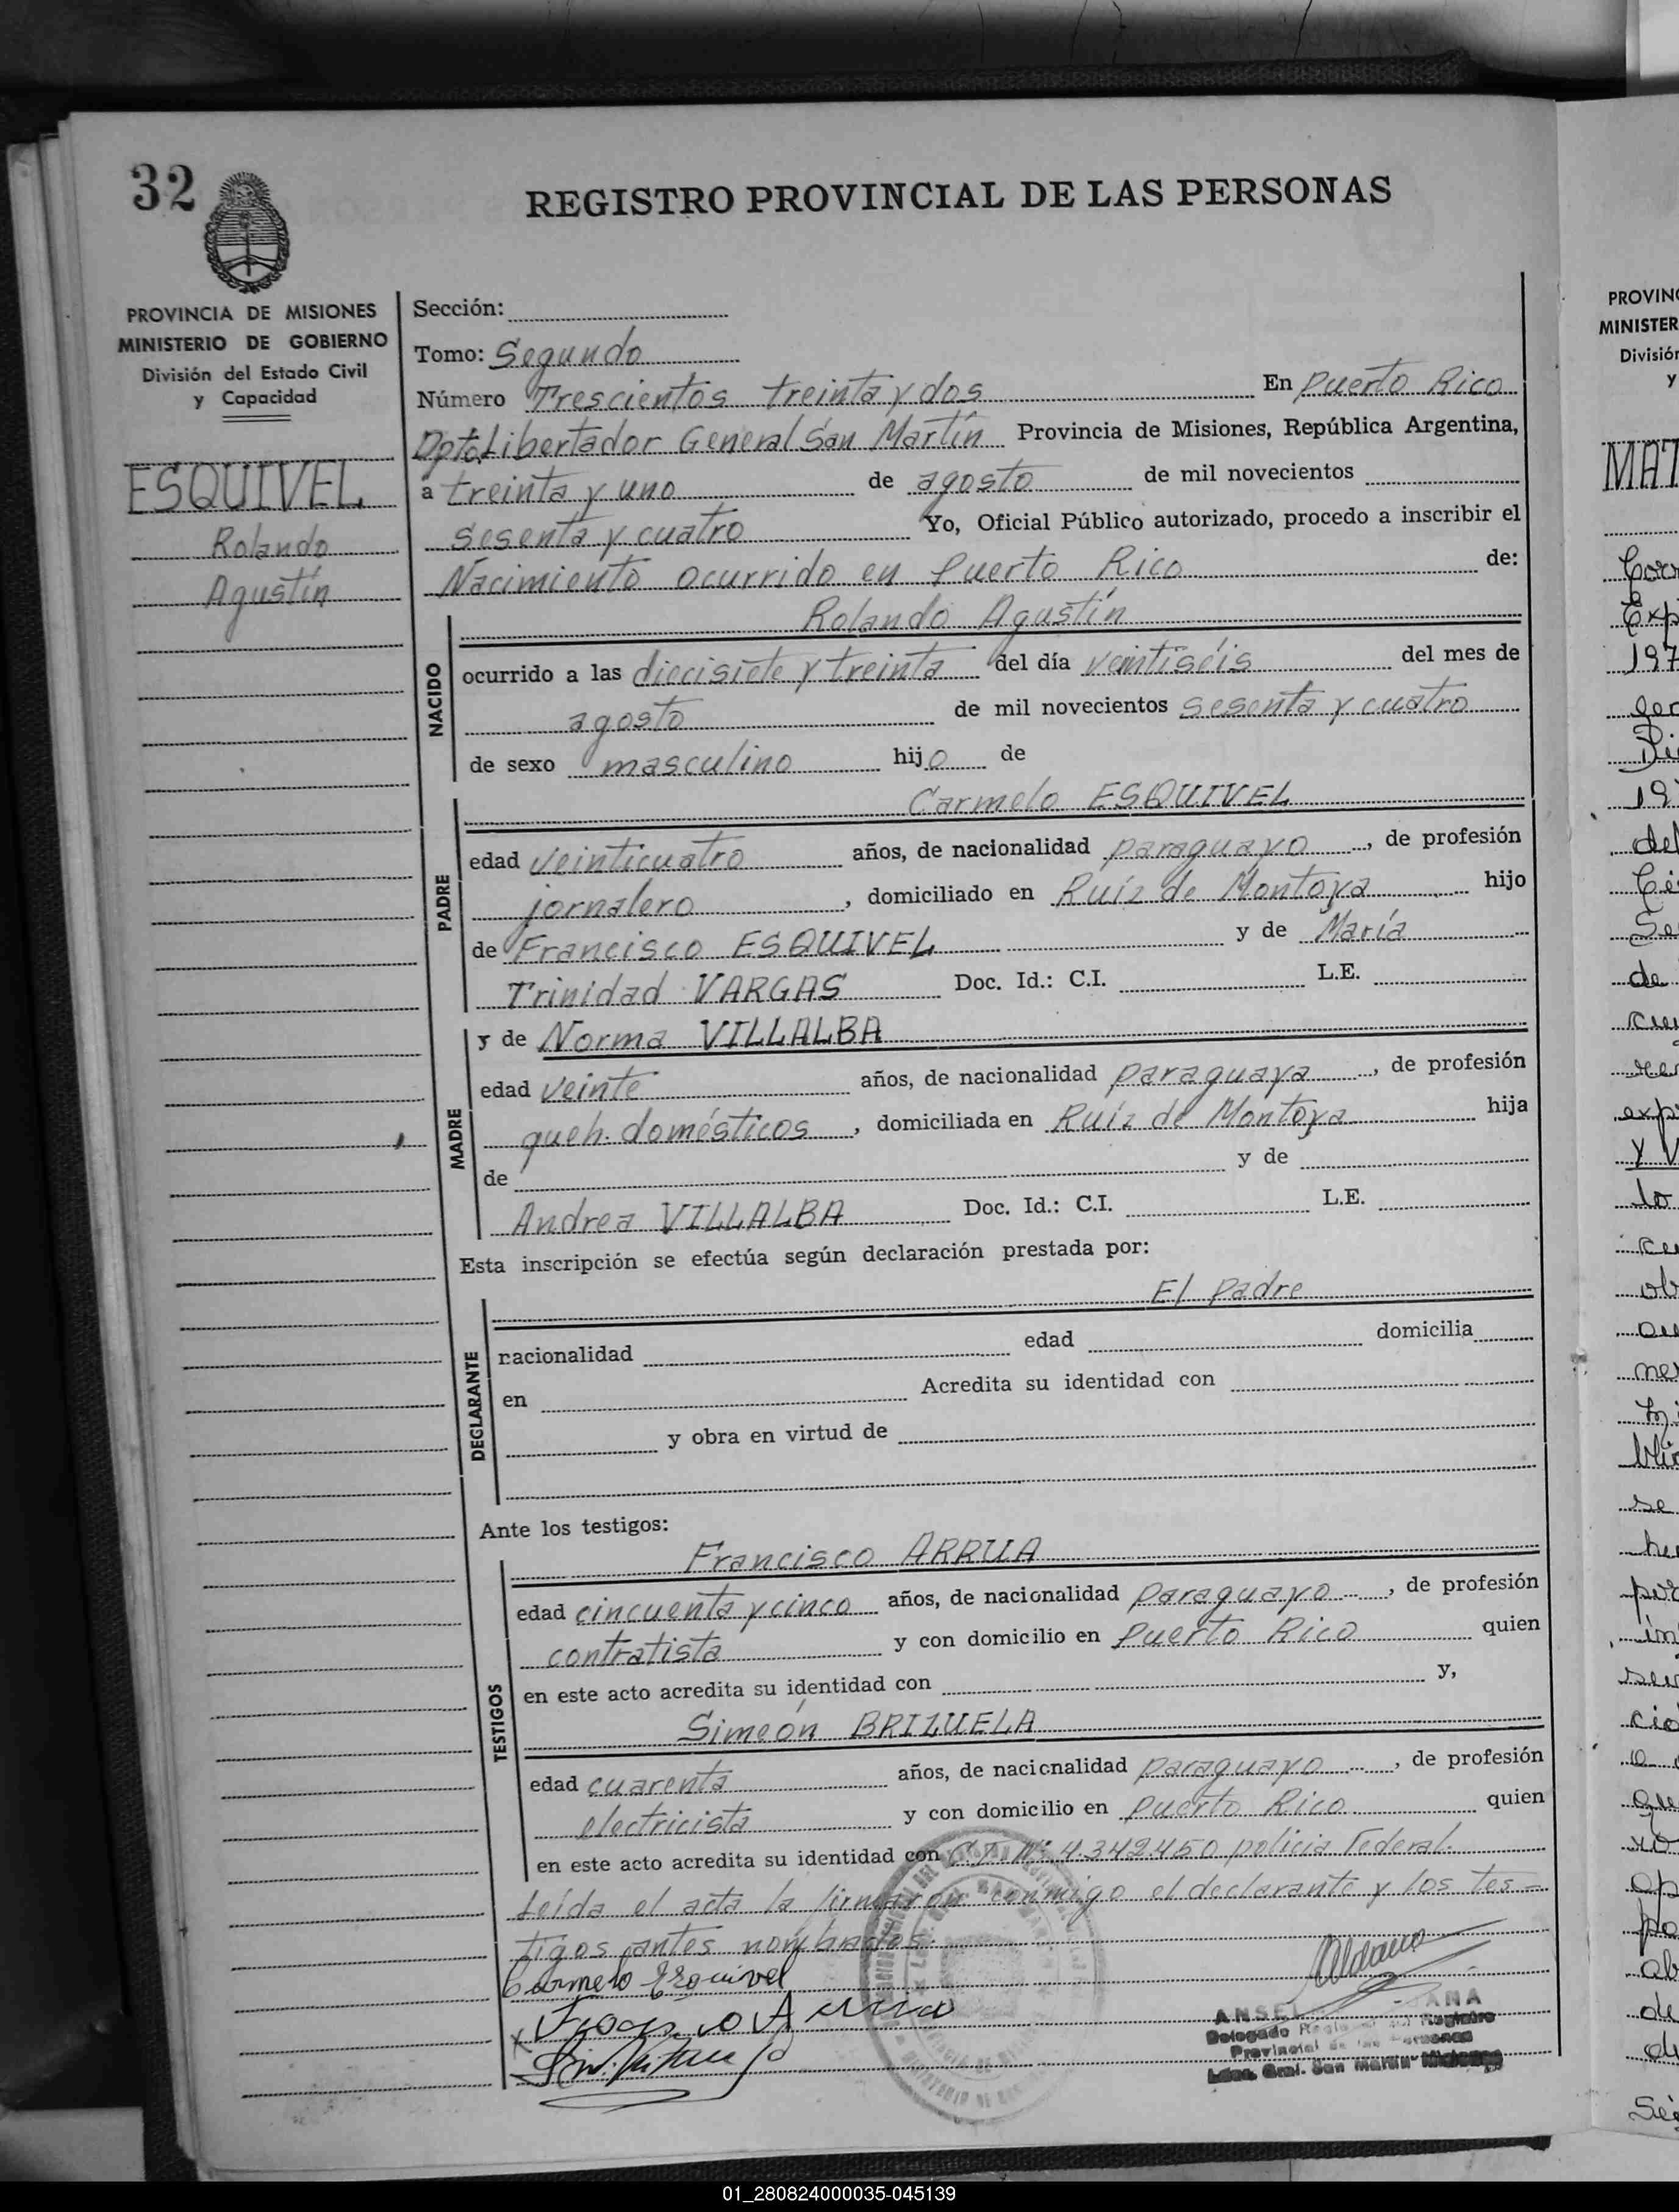 32
REGISTRO PROVINCIAL DE LAS PERSONAS
PROVINCIA DE MISIONES
MINISTERIO DE GOBIERNO
División del Estado Civil
y Capacidad
ESQUIVEL
Rolando
Agustín
Sección:
Tomo: Segundo
Número Trescientos treinta y dos En Puerto Rico
Dpto. Libertador General San Martín Provincia de Misiones, República Argentina,
a treinta y uno de agosto de mil novecientos
sesenta y cuatro Yo, Oficial Público autorizado, procedo a inscribir el
Nacimiento ocurrido en Puerto Rico de:
NACIDO
Rolando Agustín
ocurrido a las diecisiete y treinta del día veintiséis del mes de
agosto de mil novecientos sesenta y cuatro
de sexo masculino hijo de
PADRE
Carmelo ESQUIVEL
edad veinticuatro años, de nacionalidad paraguayo, de profesión
jornalero, domiciliado en Ruíz de Montoya hijo
de Francisco ESQUIVEL y de María
Trinidad VARGAS Doc. Id.: C.I. L.E.
MADRE
y de Norma VILLALBA
edad veinte años, de nacionalidad paraguaya, de profesión
queh. domésticos, domiciliada en Ruíz de Montoya hija
de y de
Andrea VILLALBA Doc. Id.: C.I. L.E.
Esta inscripción se efectúa según declaración prestada por:
El padre
DECLARANTE
nacionalidad edad domicilia
en Acredita su identidad con
y obra en virtud de
Ante los testigos:
TESTIGOS
Francisco ARRUA
edad cincuenta y cinco años, de nacionalidad paraguayo, de profesión
contratista y con domicilio en Puerto Rico quien
en este acto acredita su identidad con y,
Simeón BRIZUELA
edad cuarenta años, de nacionalidad paraguayo, de profesión
electricista y con domicilio en Puerto Rico quien
en este acto acredita su identidad con C.I. Nº 4.342.450 policia Federal.
Leída el acta la firmaron conmigo el declarante y los tes-
tigos antes nombrados.
Carmelo Esquivel
Aldana
Delegado del Registro
Provincial de las Personas
Gral. San Martín - Misiones
PROVIN
MINISTER
División
y
MAT
01_280824000035-045139